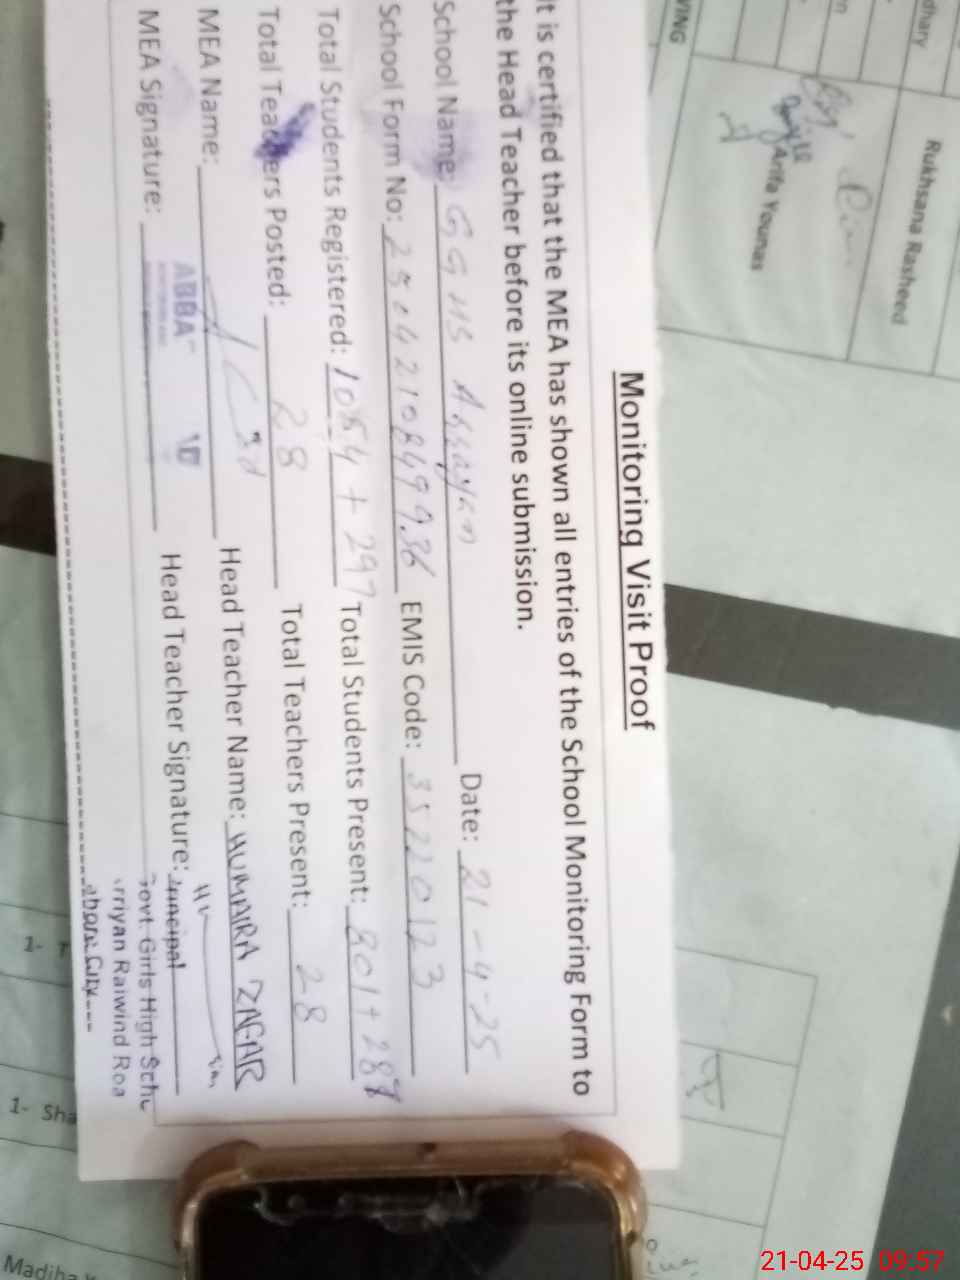 Monitoring Visit Proof
It is certified that the MEA has shown all entries of the School Monitoring Form to
the Head Teacher before its online submission.
School Name: GGHS Arrayan Date: 21-4-25
School Form No: EMIS Code: 35220123
Total Students Registered: 1054 + 297 Total Students Present: 801 + 287
Total Teachers Posted: 28 Total Teachers Present: 28
MEA Name: Head Teacher Name: HUMAIRA ZAFAR
MEA Signature: Head Teacher Signature:
Principal
Govt. Girls High Sch
rriyan Raiwind Roa
ABBA
Rukhsana Rasheed
Arifa Younas
VING
dhary
1- T
1- Sha
Madiha
21-04-25 09:57